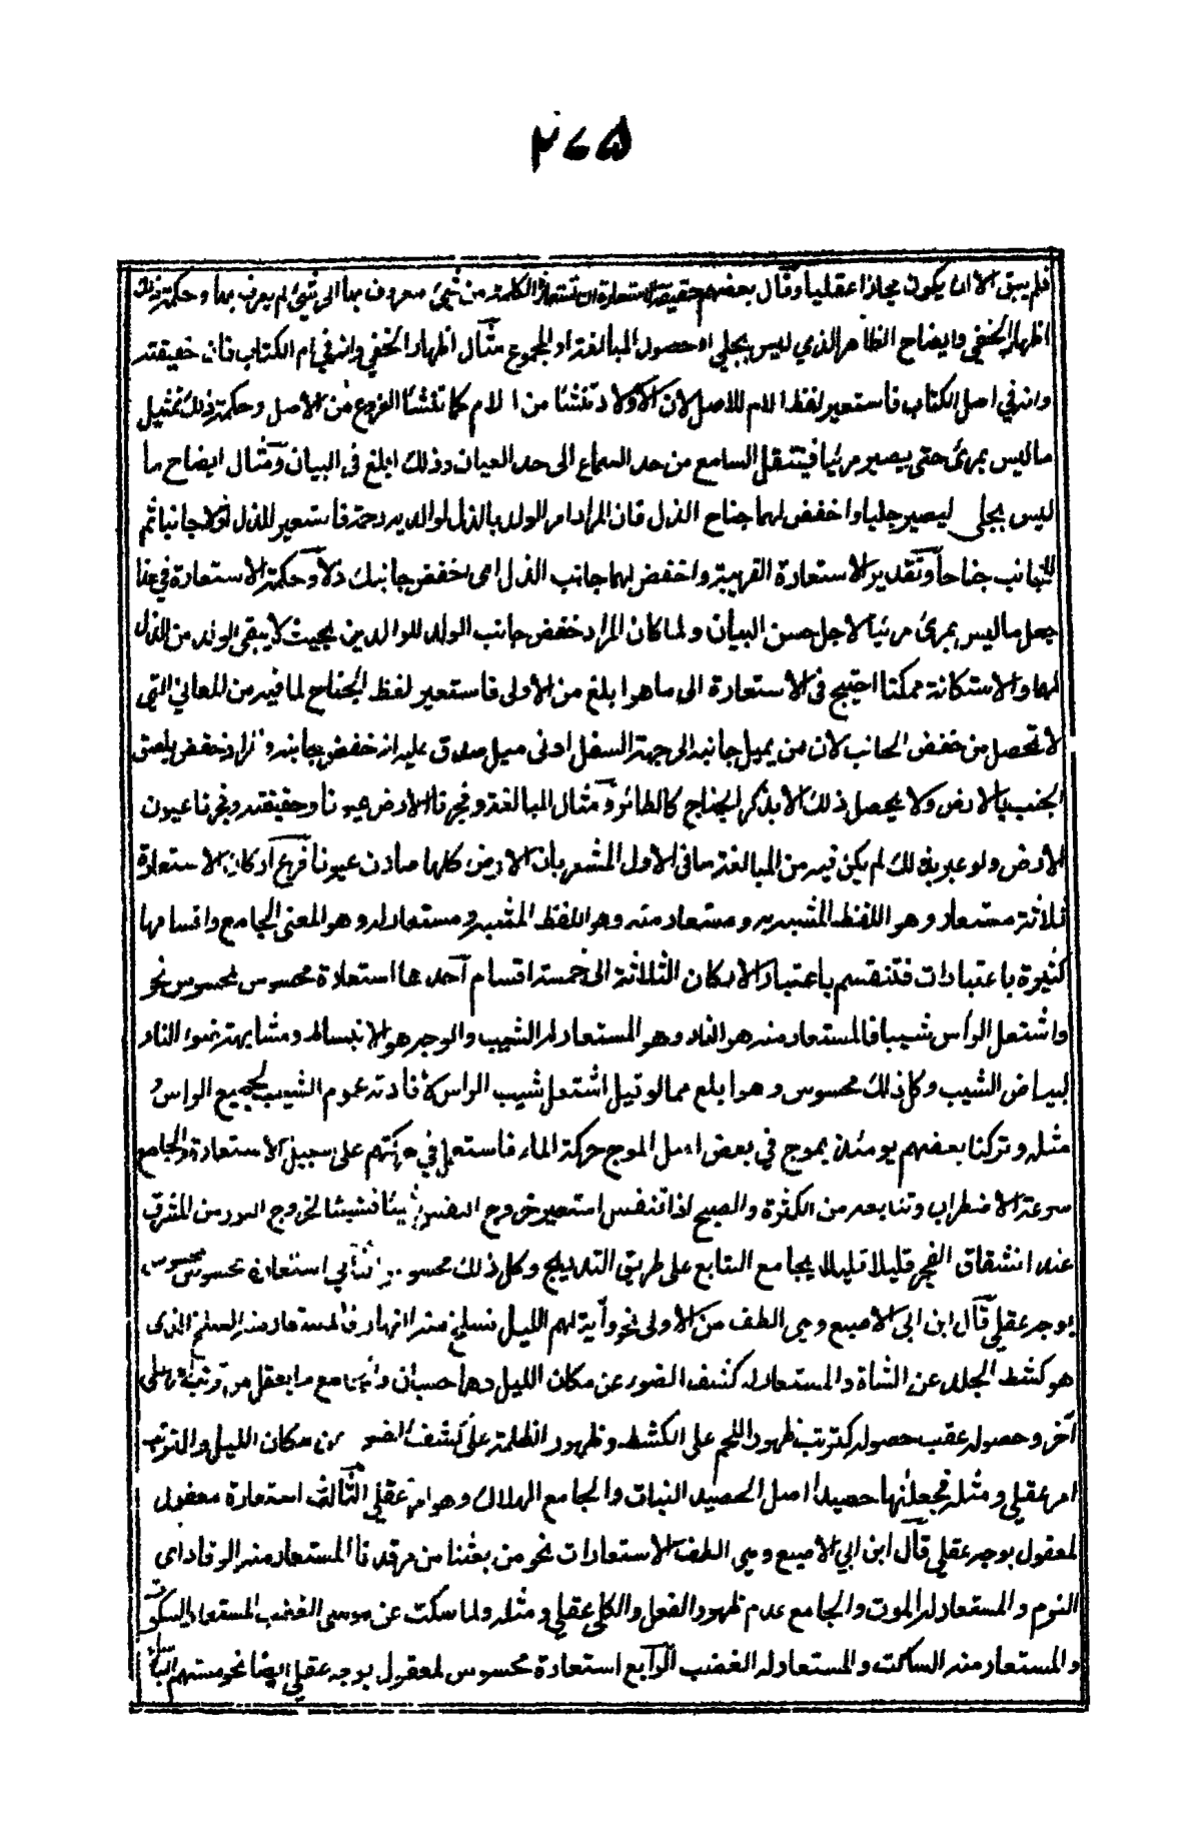 ۴۷۵
فلم يبق الا ان يكون مجازا عقليا وقال بعضهم حقيقة الاستعارة ان تستعار الكلمة من شيئ معروف بها الى شيئ لم يعرف بها وحكمة ذلك
اظهار الخفي وايضاح الظاهر الذي ليس بجلي او حصول المبالغة او المجموع مثال اظهار الخفي وانه في ام الكتاب فان حقيقته
وانه في اصل الكتاب فاستعير لفظ الام للاصل لان الاولاد تنشأ من الام كما تنشأ الفروع من الاصل وحكمة ذلك تمثيل
ما ليس بمرئ حتى يصير مرئيا فينتقل السامع من حد السماع الى حد العيان وذلك ابلغ في البيان ومثال ايضاح ما
ليس بجلي ليصير جليا واخفض لهما جناح الذل فان المراد امر الولد بالذل لوالديه رحمة فاستعير للذل اولا جانبا ثم
للجانب جناحا وتقدير الاستعارة القريبة واخفض لهما جانب الذل اى اخفض جانبك ذلا وحكمة الاستعارة في هذا
جعل ما ليس بمرئ مرئيا لاجل حسن البيان ولما كان المراد خفض جانب الولد للوالدين بحيث لا يبقي الولد من الذل
لهما والاستكانة ممكنا احتيج في الاستعارة الى ما هو ابلغ من الاولى فاستعير لفظ الجناح لما فيه من المعاني التي
لا تحصل من خفض الجانب لان من يميل جانبه الى جهة السفل ادنى ميل صدق عليه انه خفض جانبه والمراد خفض يلصق
الجنب بالارض ولا يحصل ذلك الا بذكر الجناح كالطائر ومثال المبالغة وفجرنا الارض عيونا وحقيقته وفجرنا عيون
الارض ولو عبر بذلك لم يكن فيه من المبالغة ما في الاول المشعر بان الارض كلها صارت عيونا فرع اركان الاستعارة
ثلاثة مستعار وهو اللفظ المشبه به ومستعار منه وهو اللفظ المشبه ومستعار له وهو المعنى الجامع واقسامها
كثيرة باعتبارات فتنقسم باعتبار الاركان الثلاثة الى خمسة اقسام احدها استعارة محسوس لمحسوس نحو
واشتعل الرأس شيبا فالمستعار منه هو النار وهو المستعار له الشيب والوجه هو الانبساط ومشابهة ضوء النار
لبياض الشيب وكل ذلك محسوس وهو ابلغ مما لو قيل اشتعل شيب الراس لافادته عموم الشيب لجميع الراس و
مثله وتركنا بعضهم يومئذ يموج في بعض اصل الموج حركة الماء فاستعمل في حركتهم على سبيل الاستعارة والجامع
سرعة الاضطراب وتتابعه من الكثرة والصبح اذا تنفس استعير خروج النفس شيئا فشيئا لخروج النور من المشرق
عند انشقاق الفجر قليلا قليلا بجامع التتابع على طريق التدريج وكل ذلك محسوس الثاني استعارة محسوس لمحسوس
بوجه عقلي قال ابن ابي الاصبع وهي الطف من الاولى نحو وآية لهم الليل نسلخ منه النهار فالمستعار منه السلخ الذى
هو كشط الجلد عن الشاة والمستعار له كشف الضوء عن مكان الليل وهما حسيان والجامع ما يعقل من ترتب امر على
آخر وحصوله عقب حصوله كترتب ظهور اللحم على الكشط وظهور الظلمة على كشف الضوء عن مكان الليل والترتب
امر عقلي ومثله فجعلنها حصيدا اصل الحصيد النبات والجامع الهلاك وهو امر عقلي الثالث استعارة معقول
لمعقول بوجه عقلي قال ابن ابي الاصبع وهي الطف الاستعارات نحو من بعثنا من مرقدنا المستعار منه الرقاد اى
النوم والمستعار له الموت والجامع عدم ظهور الفعل والكل عقلي ومثله ولما سكت عن موسى الغضب المستعار السكوت
والمستعار منه الساكت والمستعار له الغضب الرابع استعارة محسوس لمعقول بوجه عقلي ايضا نحو مستهم البأساء